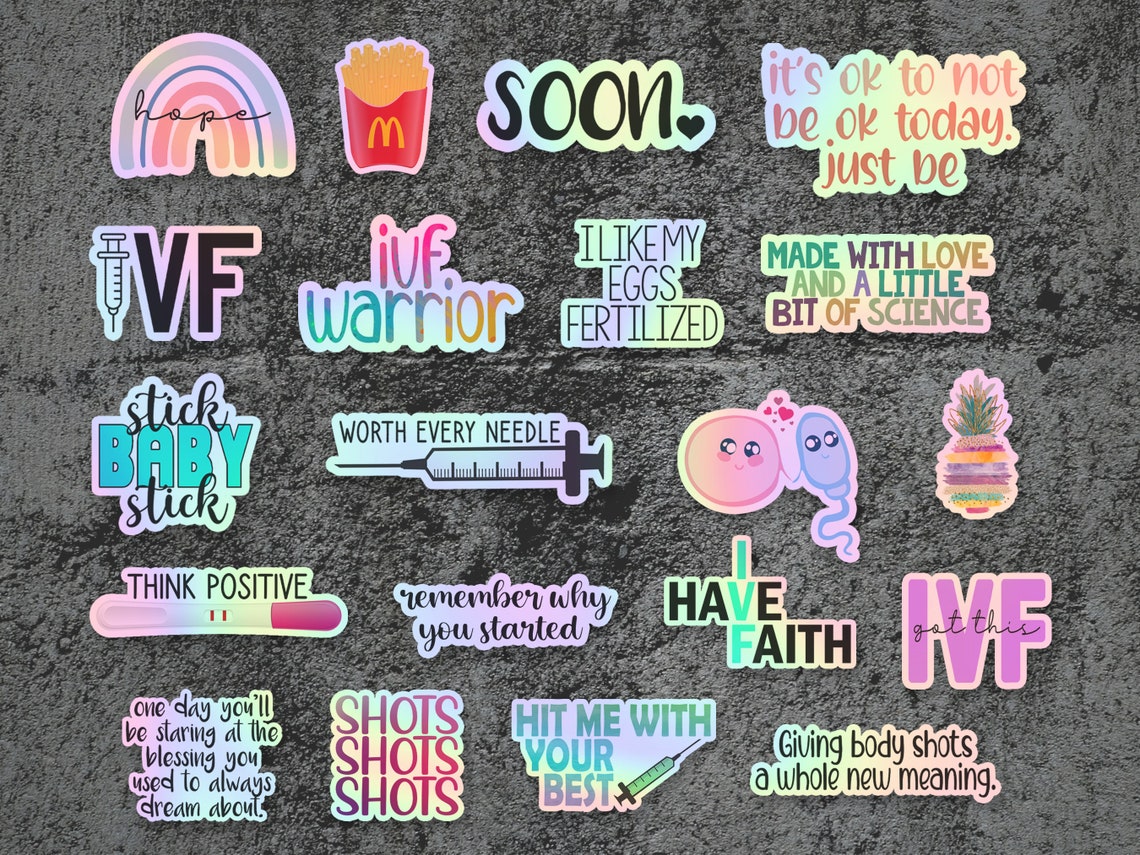 hope
M
soon.
it's ok to not
be ok today.
just be
IVF
ivf
warrior
I LIKE MY
EGGS
FERTILIZED
MADE WITH LOVE
AND A LITTLE
BIT OF SCIENCE
stick
BABY
stick
WORTH EVERY NEEDLE
THINK POSITIVE
remember why
you started
I
HAVE
FAITH
IVF
got this
one day you'll
be staring at the
blessing you
used to always
dream about.
SHOTS
SHOTS
SHOTS
SHOTS
HIT ME WITH
YOUR
BEST
Giving body shots
a whole new meaning.